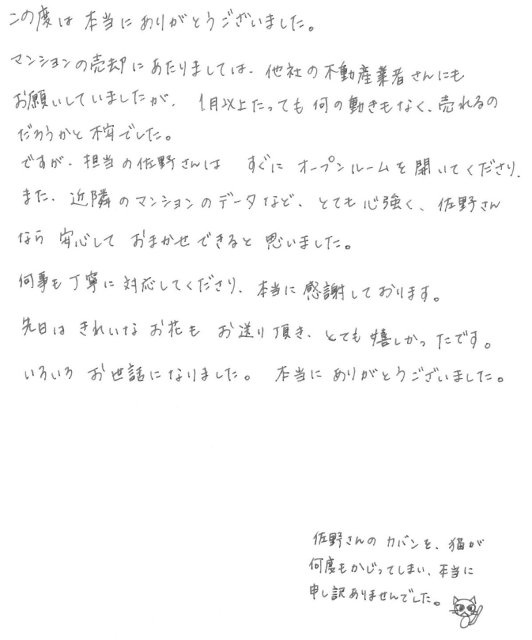 この度は本当にありがとうございました。
マンションの売却にあたりましては、他社の不動産業者さんにも
お願いしていましたが、1月以上たっても何の動きもなく、売れるの
だろうかと不安でした。
ですが、担当の佐野さんは すぐに オープンルームを開いてくださり、
また、近隣のマンションのデータなど、とても心強く、佐野さん
なら 安心して おまかせできると 思いました。
何事も丁寧に対応してくださり、本当に感謝しております。
先日は きれいな お花も お送り頂き、とても嬉しかったです。
いろいろ お世話になりました。 本当に ありがとうございました。
佐野さんの カバンを、猫が
何度もかじってしまい、本当に
申し訳ありませんでした。